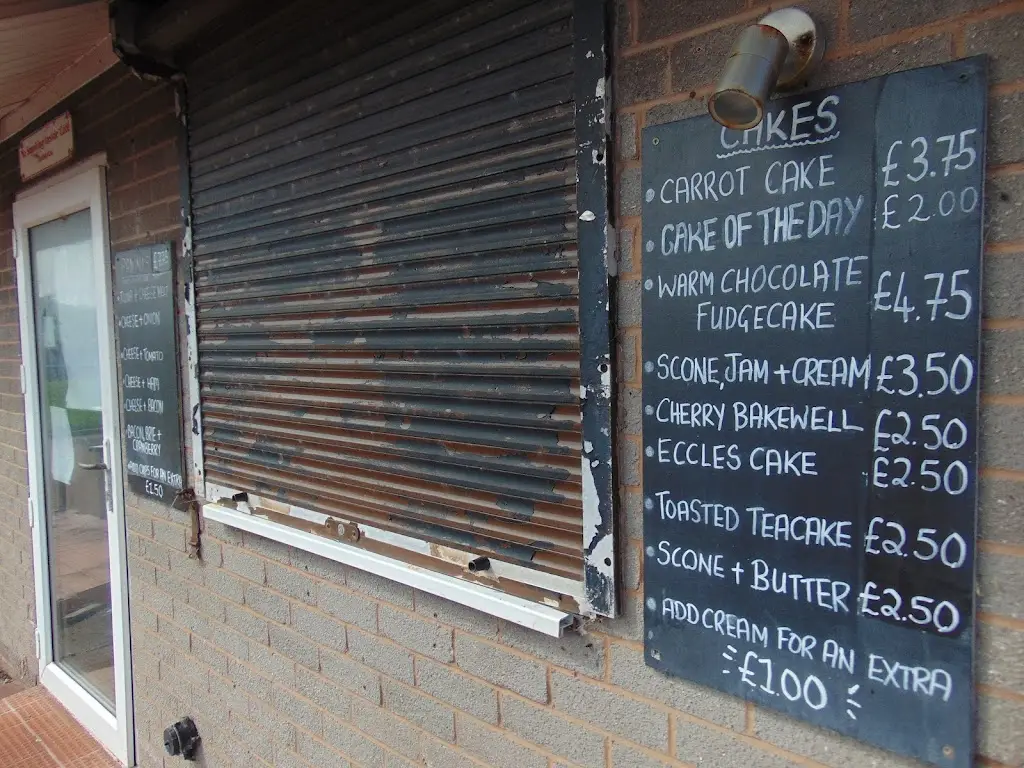 CHEESE + ONION
CHEESE + TOMATO
CHEESE + HAM
CHEESE + BACON
BACON, BRIE +
CRANBERRY
FOR AN EXTRA
£1.50
CAKES
CARROT CAKE £3.75
CAKE OF THE DAY £2.00
WARM CHOCOLATE
FUDGECAKE £4.75
SCONE, JAM + CREAM £3.50
CHERRY BAKEWELL £2.50
ECCLES CAKE £2.50
TOASTED TEACAKE £2.50
SCONE + BUTTER £2.50
ADD CREAM FOR AN EXTRA
£1.00